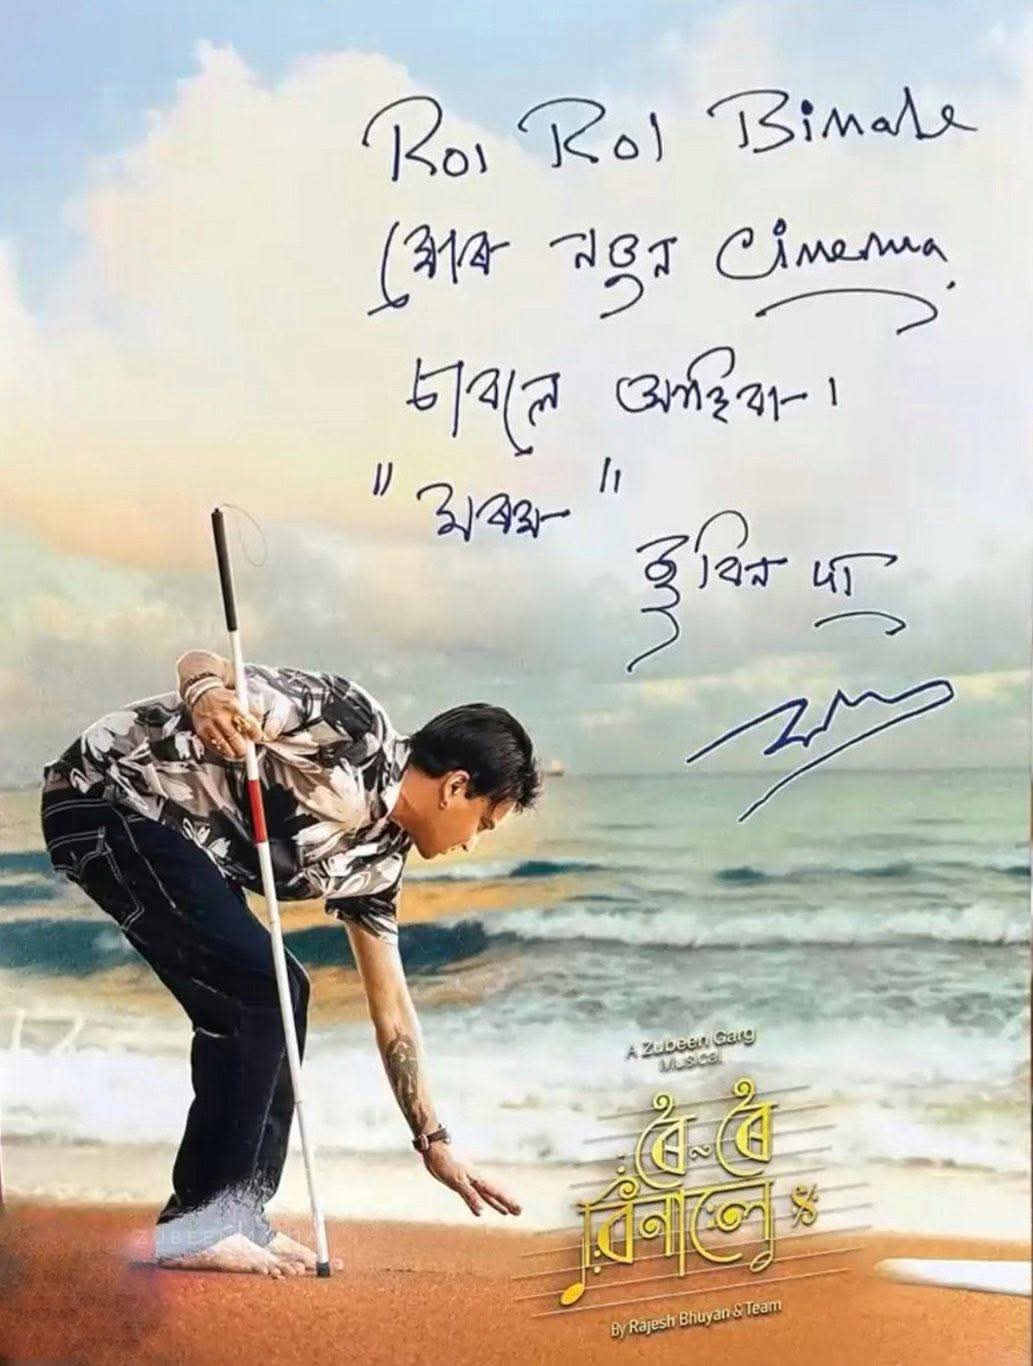 Roi Roi Binale
মোৰ নতুন Cinema.
চাবলৈ আহিবা।
"মৰম"
জুবিন দা
A Zubeen Garg
Musical
ৰৈ ~ ৰৈ
বিনালে
By Rajesh Bhuyan & Team